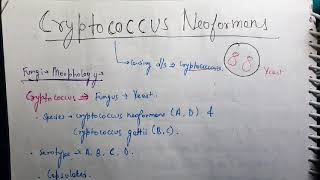 Cryptococcus Neoformans
causing d/s → Cryptococcosis
Yeast
Fungi → Morphology →
Cryptococcus ⇒ Fungus + Yeast.
• Species → Cryptococcus neoformans (A, D) &
Cryptococcus gattii (B, C).
• Serotype → A, B, C, D.
• Capsulated.